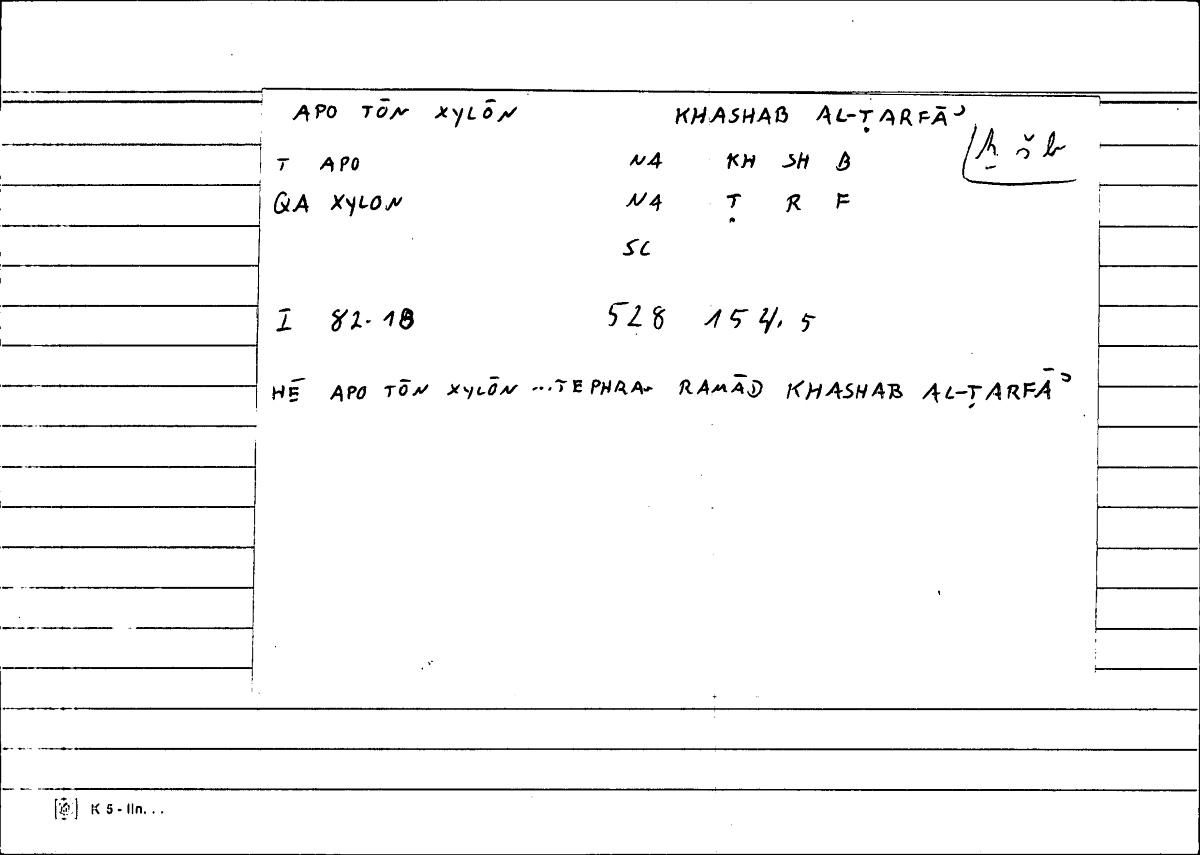 APO TŌN XYLŌN KHASHAB AL-ṬARFĀʾ
ḫ š b
T APO NA KH SH B
QA XYLON NA Ṭ R F
SC
I 82.18 528 154.5
HĒ APO TŌN XYLŌN ...TEPHRA- RAMĀD KHASHAB AL-ṬARFĀʾ
K 5 - lin...